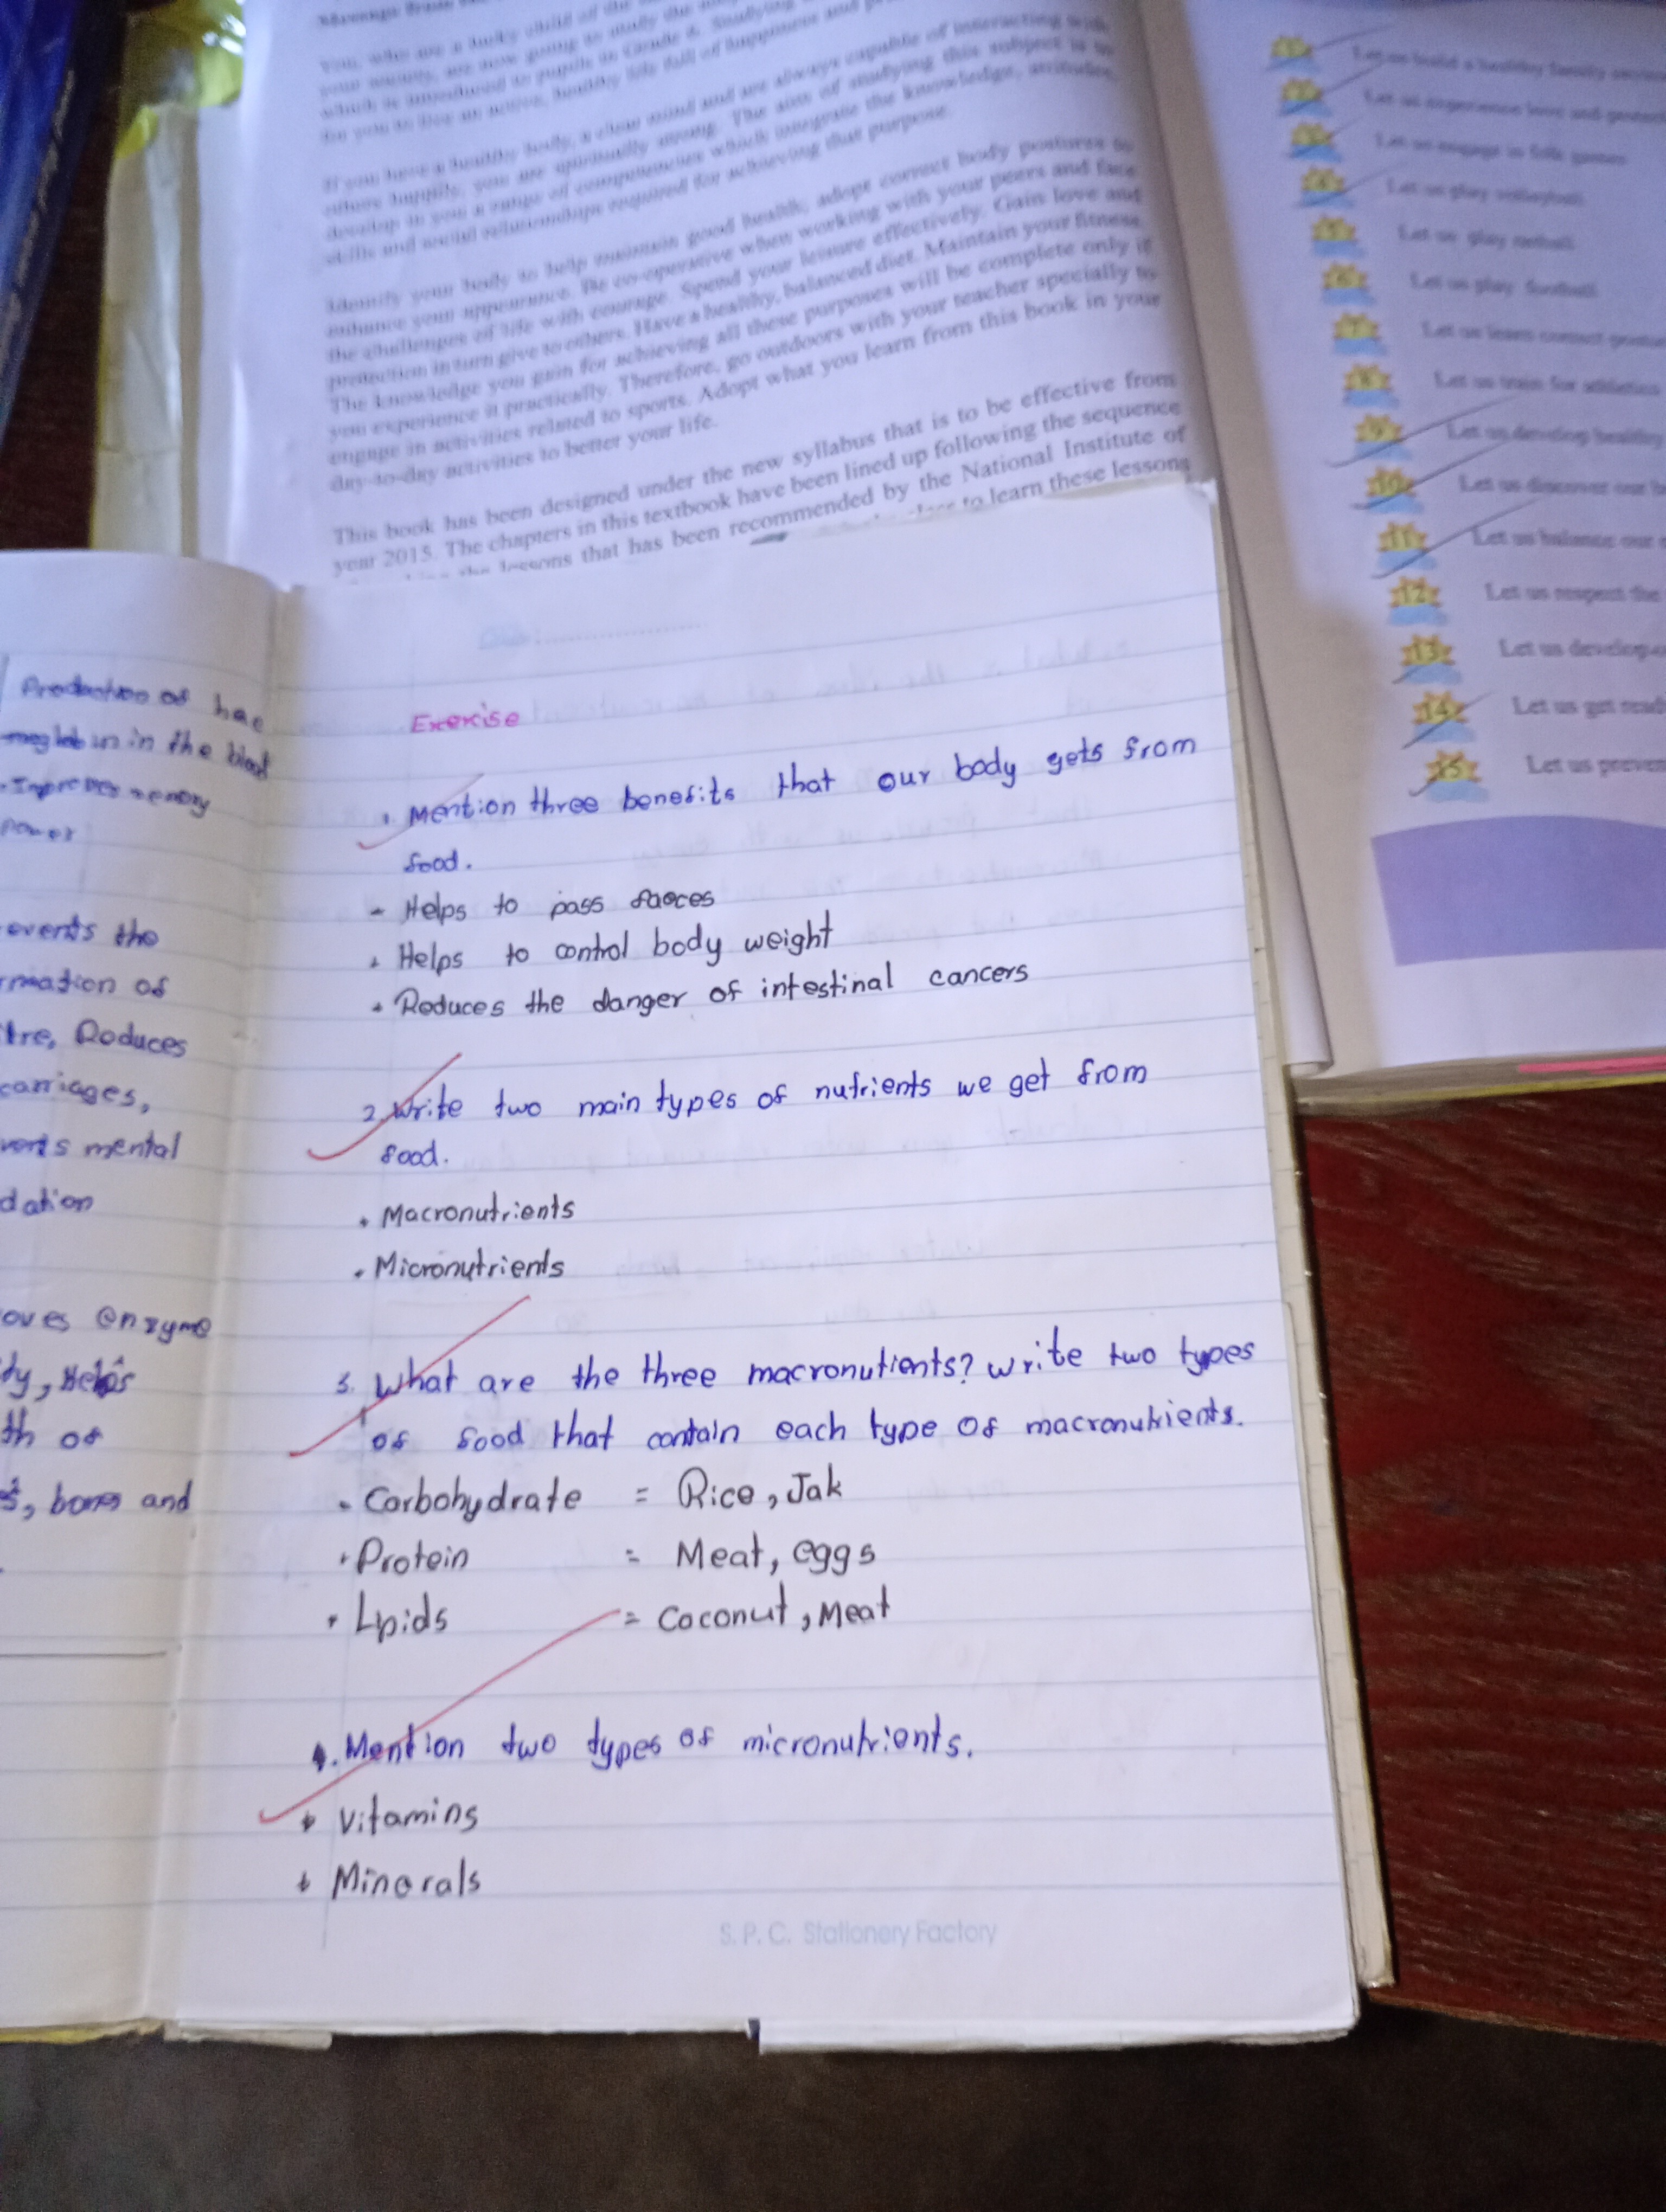 If you have a healthy body, a clear mind and are always capable of interacting with
others happily, you are spiritually strong. The aim of studying this subject is to
develop in you a range of competencies which integrate the knowledge, attitudes,
skills and social relationships required for achieving that purpose.
Identify your body to help maintain good health, adopt correct body postures to
enhance your appearance. Be co-operative when working with your peers and face
the challenges of life with courage. Spend your leisure effectively. Gain love and
protection in turn give to others. Have a healthy, balanced diet. Maintain your fitness.
The knowledge you gain for achieving all these purposes will be complete only if
you experience it practically. Therefore, go outdoors with your teacher specially to
engage in activities related to sports. Adopt what you learn from this book in your
day-to-day activities to better your life.
This book has been designed under the new syllabus that is to be effective from
year 2015. The chapters in this textbook have been lined up following the sequence
lessons that has been recommended by the National Institute of
to learn these lessons
1 Let us build a healthy family
2 Let us experience love and
3 Let us engage in folk games
4 Let us play volleyball
5 Let us play netball
6 Let us play football
7 Let us learn correct
8 Let us train for athletics
9 Let us develop healthy
10 Let us discover our
11 Let us balance our
12 Let us respect the
13 Let us develop
14 Let us get
15 Let us
Production of hae
moglobin in the blood
Improves memory
power
events the
rmation of
tre, Reduces
carriages,
vents mental
dation
oves enzyme
ty, Helps
th of
s, bones and
Exercise
1. Mention three benefits that our body gets from
food.
- Helps to pass faeces
• Helps to control body weight
• Reduces the danger of intestinal cancers
2. Write two main types of nutrients we get from
food.
• Macronutrients
• Micronutrients
3. What are the three macronutients? Write two types
of food that contain each type of macronutrients.
• Carbohydrate = Rice, Jak
• Protein = Meat, eggs
• Lpids = Coconut, Meat
4. Mention two types of micronutrients.
• Vitamins
• Minerals
S. P. C. Stationery Factory